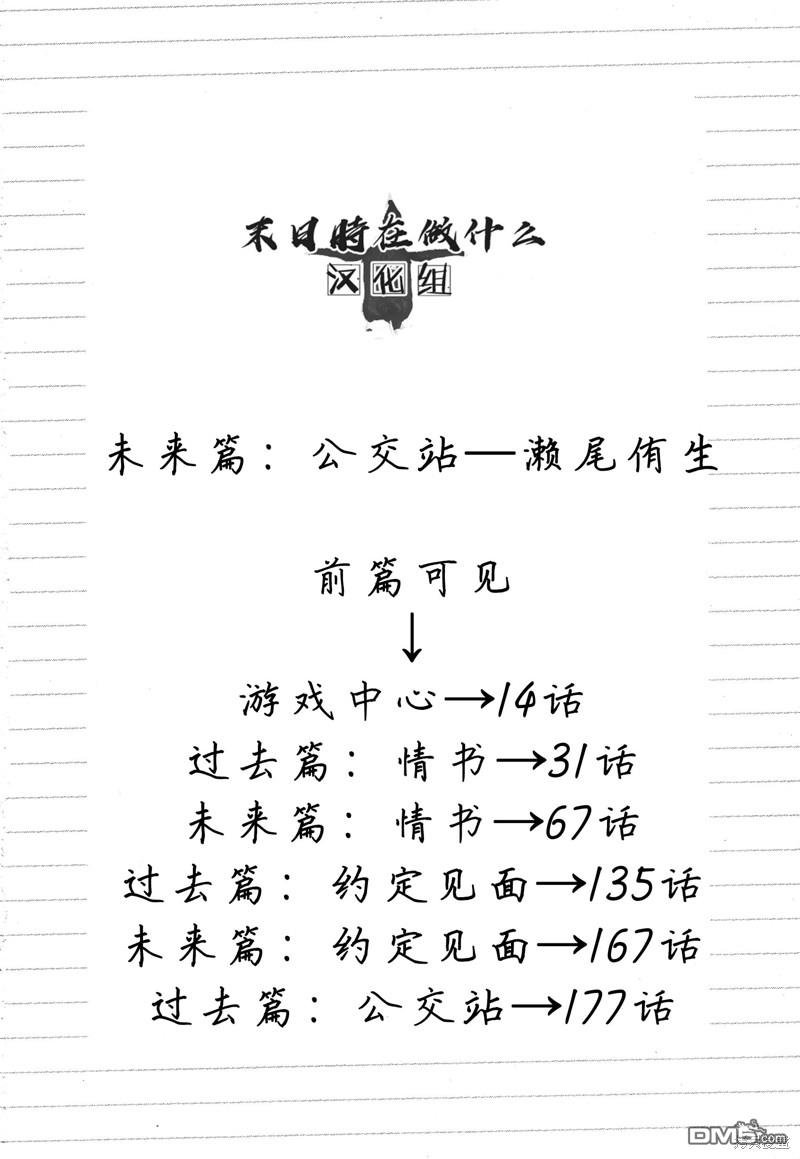 末日時在做什么
汉化组
未来篇：公交站—濑尾侑生
前篇可见
↓
游戏中心→14话
过去篇：情书→31话
未来篇：情书→67话
过去篇：约定见面→135话
未来篇：约定见面→167话
过去篇：公交站→177话